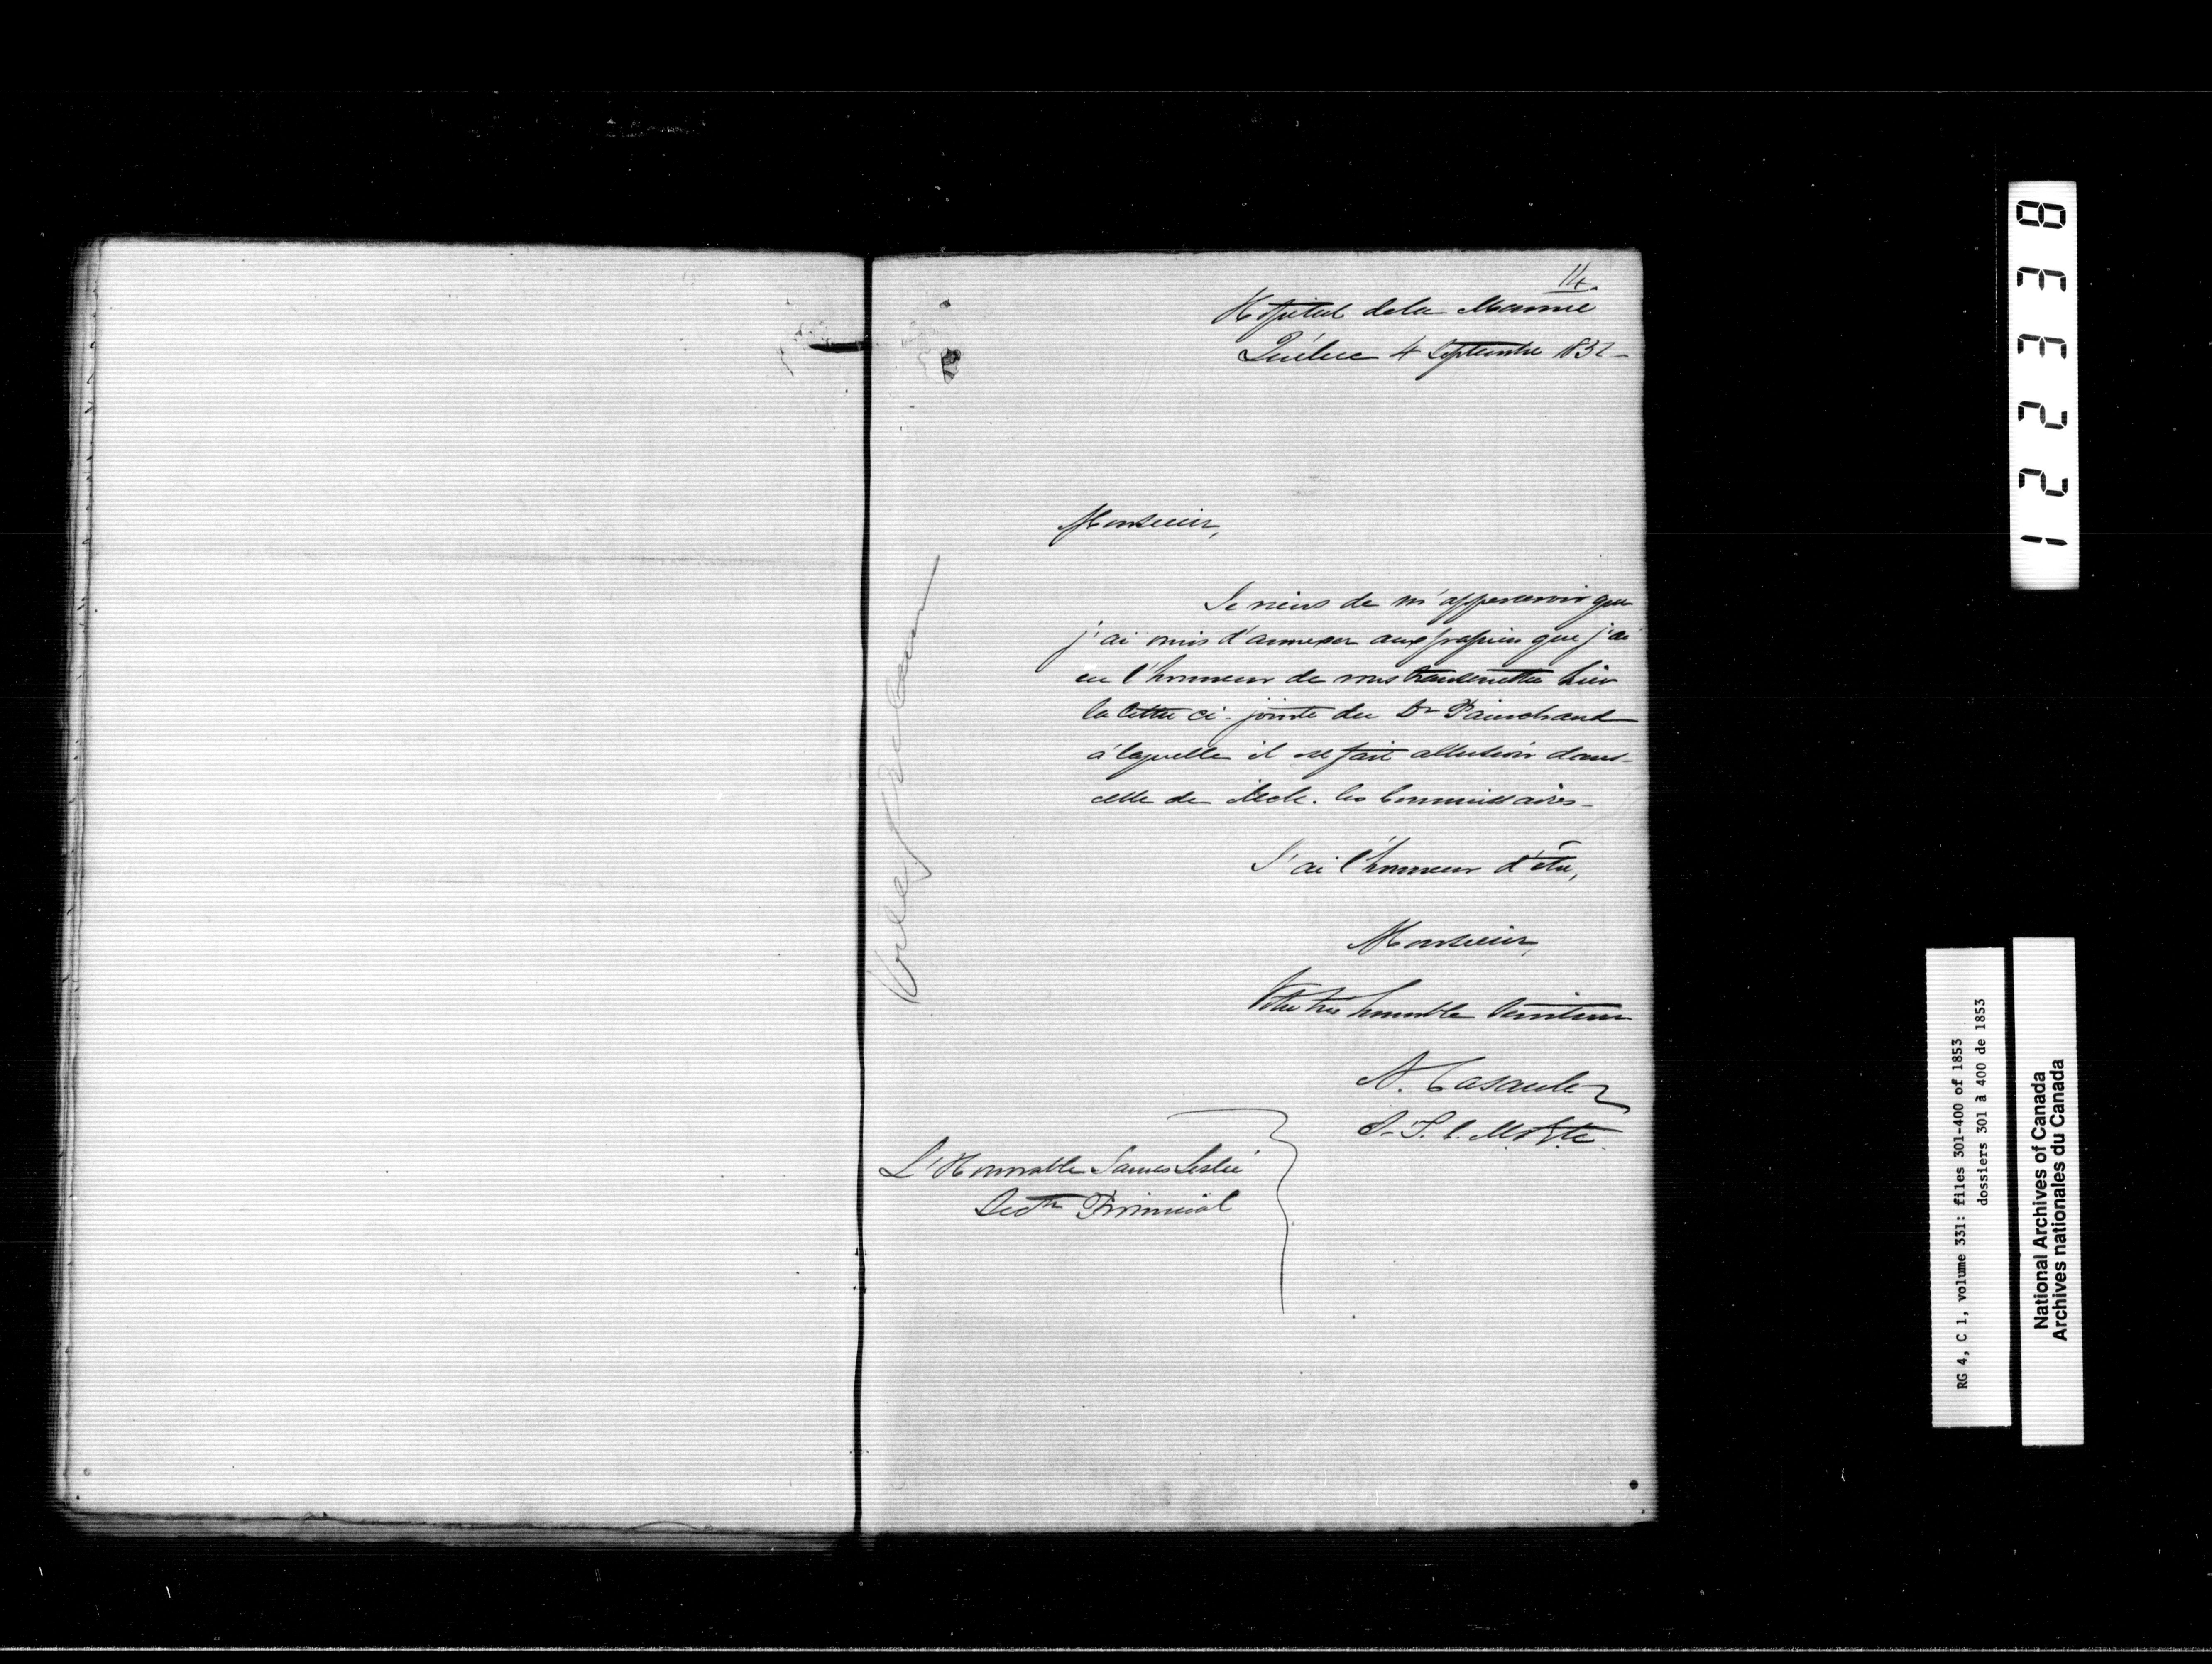 14.
Hopital de la Marine
Québec 4 Septembre 1851-
Monsieur,
Je viens de m'appercevoir que
j'ai omis d'annexer aux papiers que j'ai
eu l'honneur de vous transmettre hier
la lettre ci-jointe du Dr Painchaud
à laquelle il est fait allusion dans
celle de les Commissaires-
J'ai l'honneur d'être,
Monsieur,
Votre très humble Serviteur
N. Casault
L'Honorable James Leslie
Secre Provincial
12238
RG 4, C 1, volume 331: files 301-400 of 1853
dossiers 301 à 400 de 1853
National Archives of Canada
Archives nationales du Canada